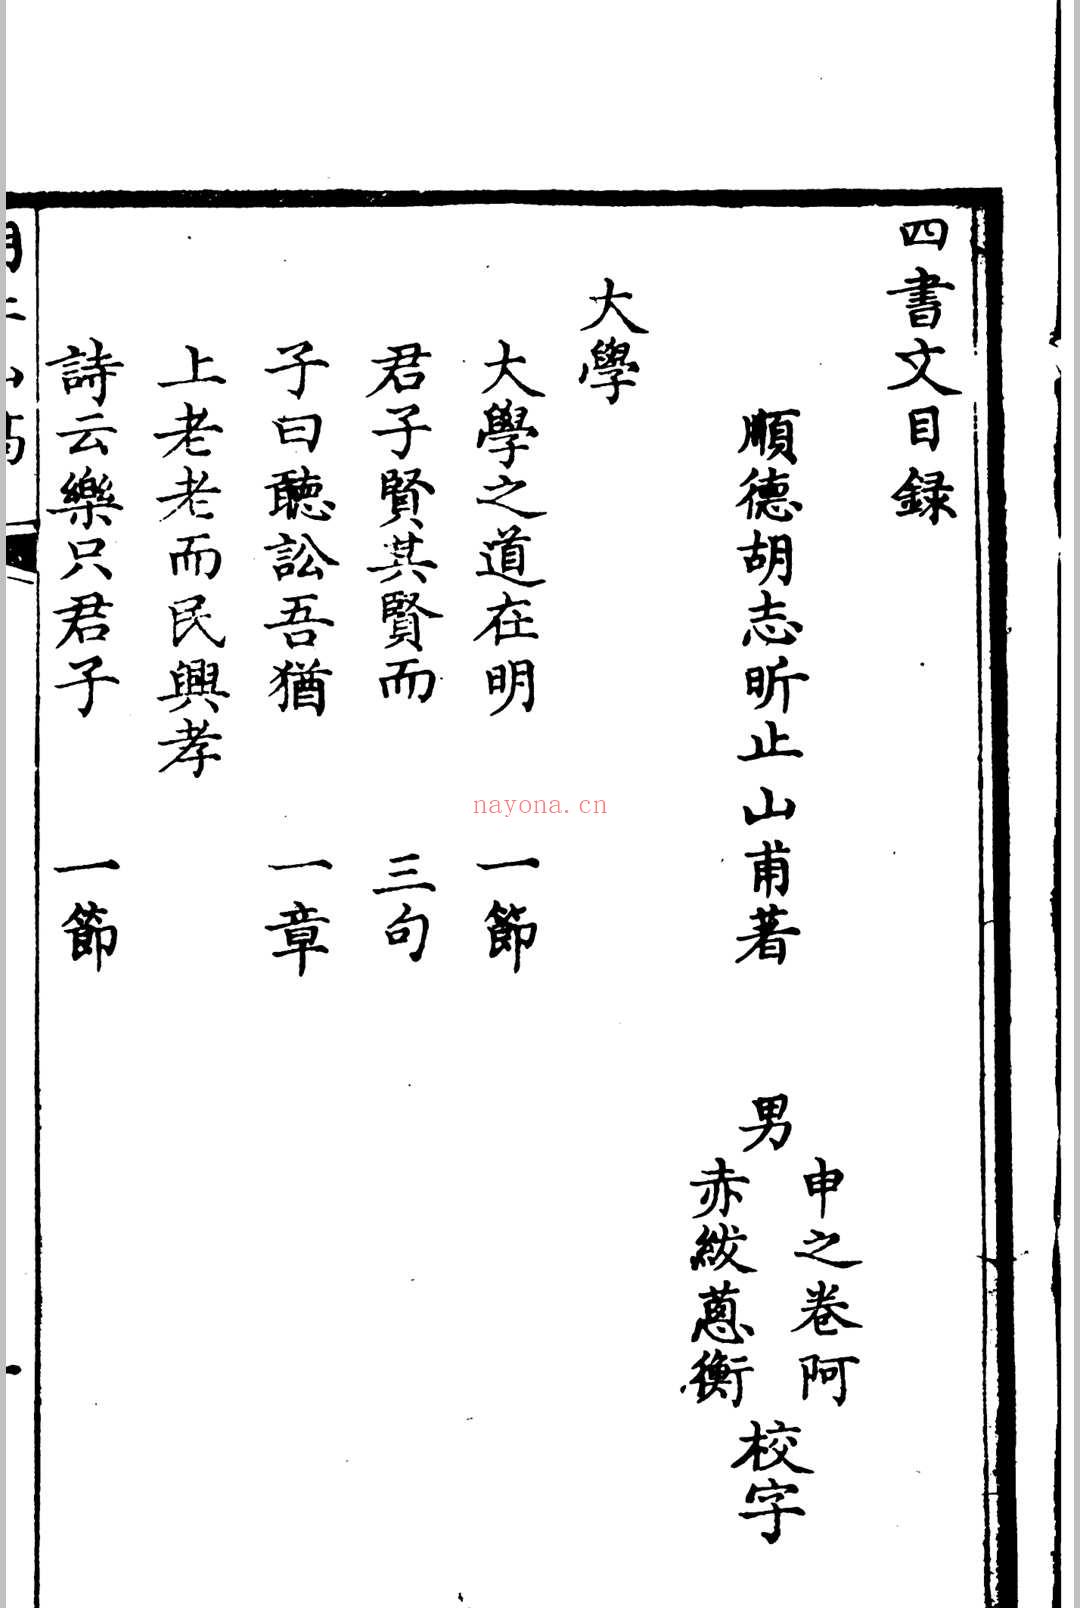 四書文目録
順德胡志昕止山甫著 男 申之卷阿 赤紱蔥衡 校字
大學
大學之道在明 一節
君子賢其賢而 三句
子曰聽訟吾猶 一章
上老老而民興孝
詩云樂只君子 一節
nayona.cn